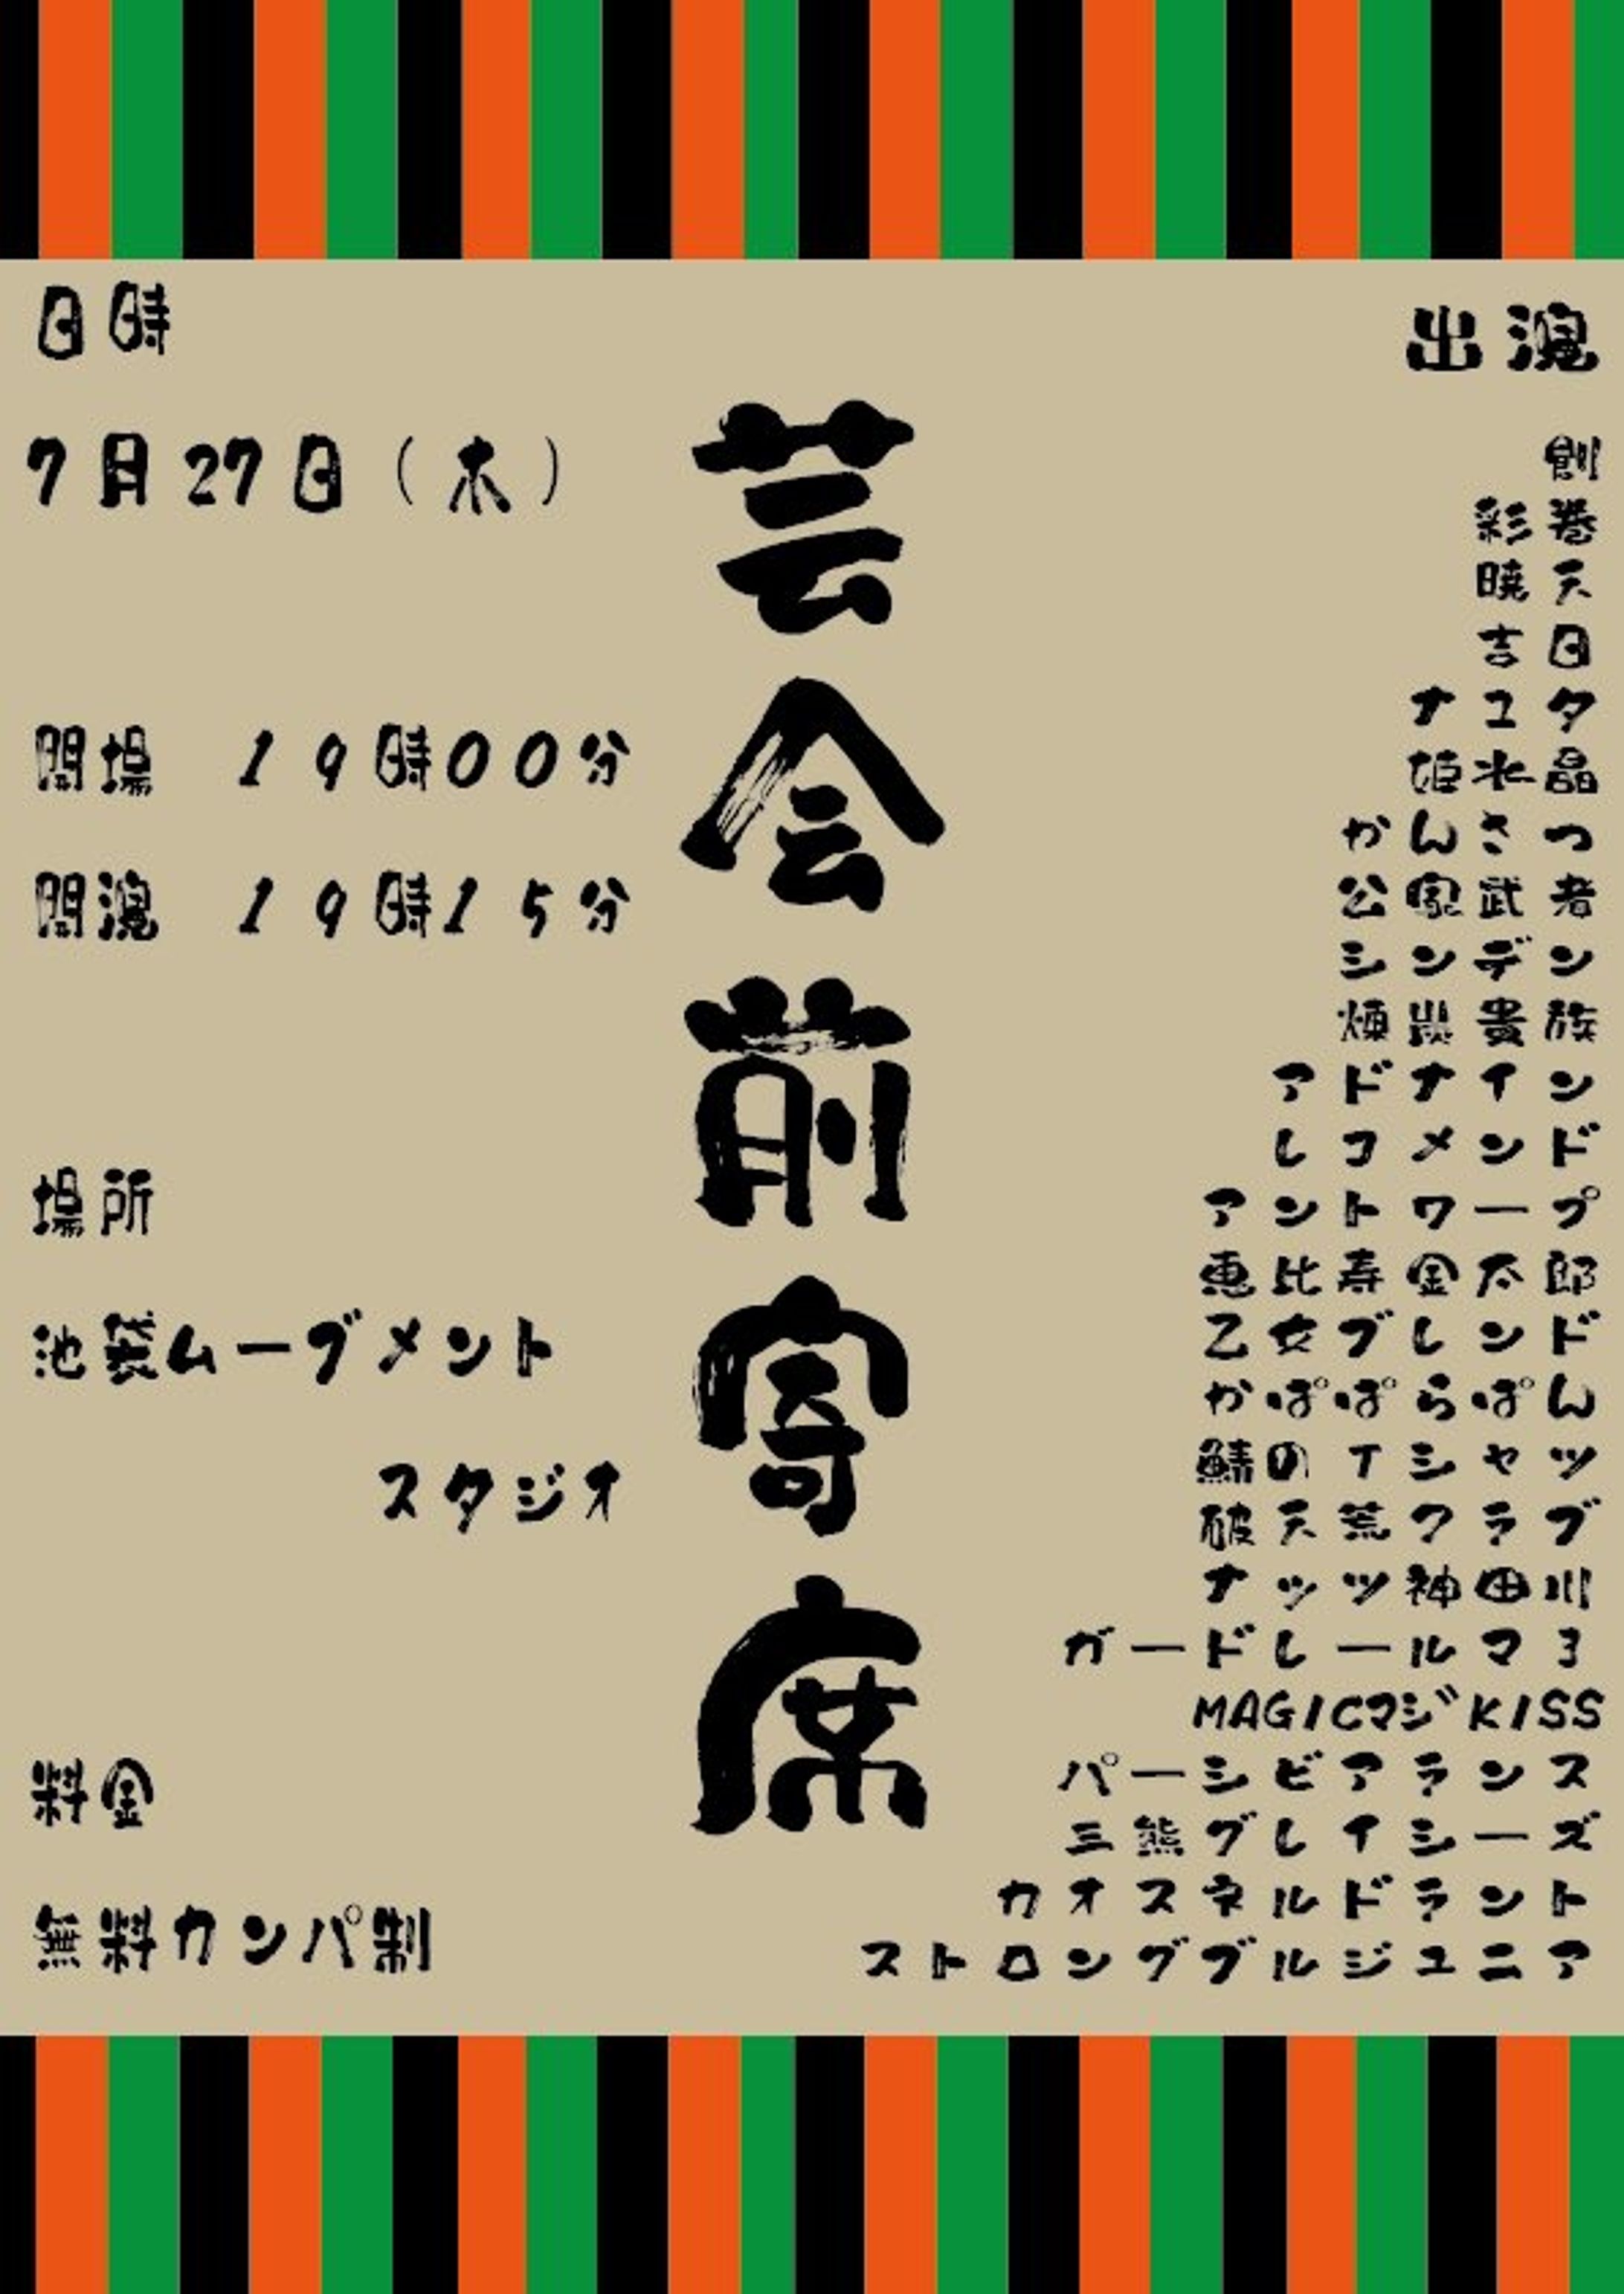 芸会前寄席
日時
7月27日(木)
開場 19時00分
開演 19時15分
場所
池袋ムーブメント
スタジオ
料金
無料カンパ制
出演
創
彩巻
暁天
吉日
ナユタ
姫水晶
かんさつ
公家武者
シンデン
煉炭貴族
アドナイン
レコメンド
アントワープ
恵比寿金太郎
乙女ブレンド
かぱぱらぱん
鯖のTシャツ
破天荒クラブ
ナッツ神田川
ガードレールマヨ
MAGICマジKISS
パーシビアランス
三熊グレイシーズ
カオスネルドラント
ストロングブルジュニア